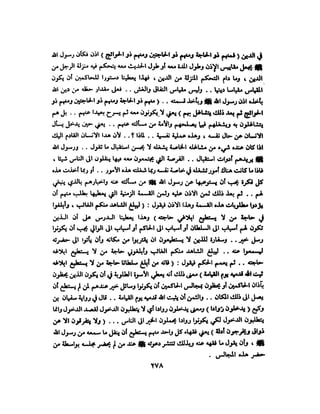 في الدين ( فمنهم ذو الحاجة ومنهم ذو الحاجتين ومنهم ذو الحوائج ) اذن فكأن رسول الله
ﷺ يجعل مقاييس الإذن وطول المدة معه أو طول الحديث معه يتحكم فيه منزلة الرجل من
الدين ، وما دام التحكم المنزلة من الدين ، فهذا يعطينا دستورا للحاكمين أن يكون
المقياس مقياسا دينيا .. وليس مقياس النفاق والغش .. فعلى مقدار حظه من دين الله
يأخذ اذن رسول الله ﷺ ويأخذ قسمته .. ( فمنهم ذو الحاجة ومنهم ذو الحاجتين ومنهم ذو
الحوائج ثم بعد ذلك يتشاغل بهم ) يعني لا يكونون معه ثم يسرح بعيدا عنهم .. بل هم
يتشاغلون به ويشغلهم فيما يصلحهم والأمة من مسألته عنهم .. يعني حين يدخل يسأل
الانسان عن حال نفسه ، وهذه عملية نفسية .. لماذا ؟ .. لأن هذا الانسان القادم اليك
اذا كان عنده شيء من مشاغله الخاصة يشغله لا يحسن استقبال ما تقول .. ورسول الله
ﷺ يريدهم أدوات استقبال .. الفرصة التي يجتمعون معه فيها ينقلون الى الناس شيئا ،
فاذا ما كانت هناك أمور تشغله في خاصة نفسه ربما شغلته هذه الأمور .. أو ربما أخذت هذه
كل فكرة يجب أن يستوعبها عن رسول الله ﷺ من مسألته عنه واخبارهم بالذي ينبغي
لهم .. ثم بعد ذلك ثمن الاذن عليه وثمن القسمة الزمنية التي يعطيها يطلب منهم أن
يؤدوا مطلوبات هذه القسمة وهذا الاذن فيقول : ( ليبلغ الشاهد منكم الغائب ، وأبلغوا
في حاجة من لا يستطيع ابلاغي حاجته ) وهذا يعطينا الدرس على أن الذين
تكون لهم أسباب الى السلطان أو أسباب الى الحاكم أو أسباب الى الوالي يجب أن يكونوا
رسل خير .. وسفارة للذين لا يستطيعون أن يقتربوا من مكانه وأن يأتوا الى حضرته
ليسمعوا عنه .. ليبلغ الشاهد منكم الغائب وأبلغوني حاجة من لا يستطيع ابلاغه
حاجته .. ثم يحمسهم الحكم فيقول : ( فانه من أبلغ سلطانا حاجة من لا يستطيع ابلاغه
ثبت الله قدميه يوم القيامة ) معنى ذلك أنه يعطي الأسوة المطلوبة في أن يكون الذين يحظون
بآذان الحاكمين أو يحظون بمجالس الحاكمين أن يكونوا وسائل خير عندهم لمن لم يستطع أن
يصل الى ذلك المكان .. والثمن أن يثبت الله قدميه يوم القيامة .. قال في رواية سفيان بن
وكيع ( يدخلون روادا ) ومعنى يدخلون روادا أي لا يتطلبون الدخول لقصد الدخول وانما
يتطلبون الدخول لكي يكونوا روادا يحملون الخبر الى الناس ... ( ولا يتفرقون الا عن
ذواق ويخرجون أدلة ) يعني فقهاء كل واحد منهم يستطيع أن ينقل ما سمعه من رسول الله
ﷺ ، وأن يقول ما فقه عنه وبذلك تنتشر دعوته ﷺ عند من لم يحضر مجلسه بواسطة من
حضر هذه المجالس .
٢٧٨